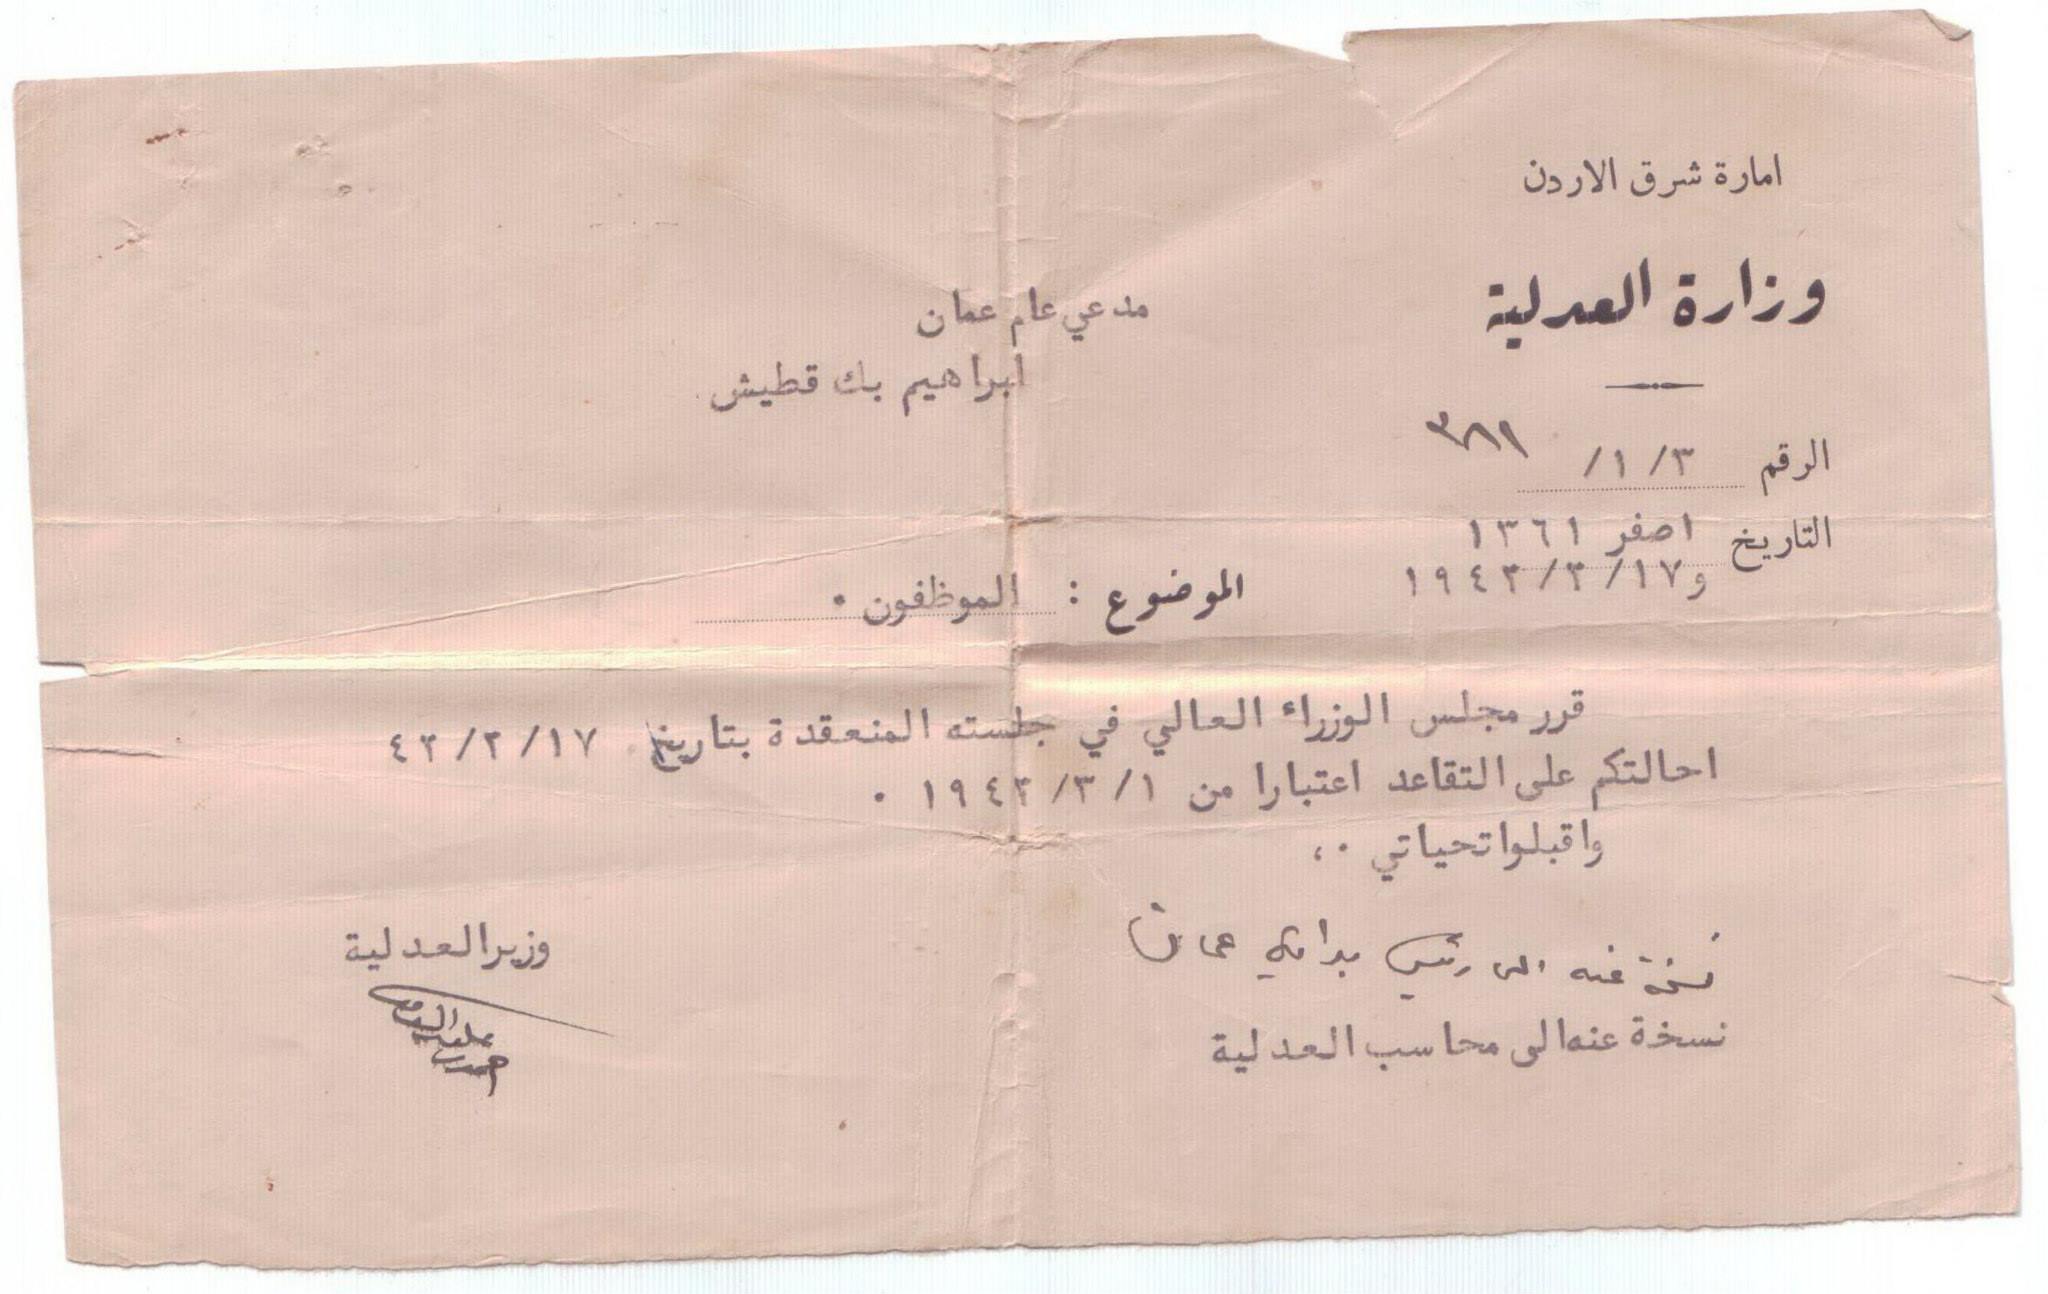 امارة شرق الاردن
وزارة العدلية
مدعي عام عمان
ابراهيم بك قطيش
الرقم ٣/ ١/ ٣٨١
التاريخ ١صفر ١٣٦١
و١٧/ ٢/ ١٩٤٢
الموضوع : الموظفون ٠
قرر مجلس الوزراء العالي في جلسته المنعقدة بتاريخ ١٧/ ٢/ ٤٢
احالتكم على التقاعد اعتبارا من ١/ ٣/ ١٩٤٢ ٠
واقبلوا تحياتي ٠،
وزير العدلية
نسخة عنه الى رئيس بداية عمان
نسخة عنه الى محاسب العدلية